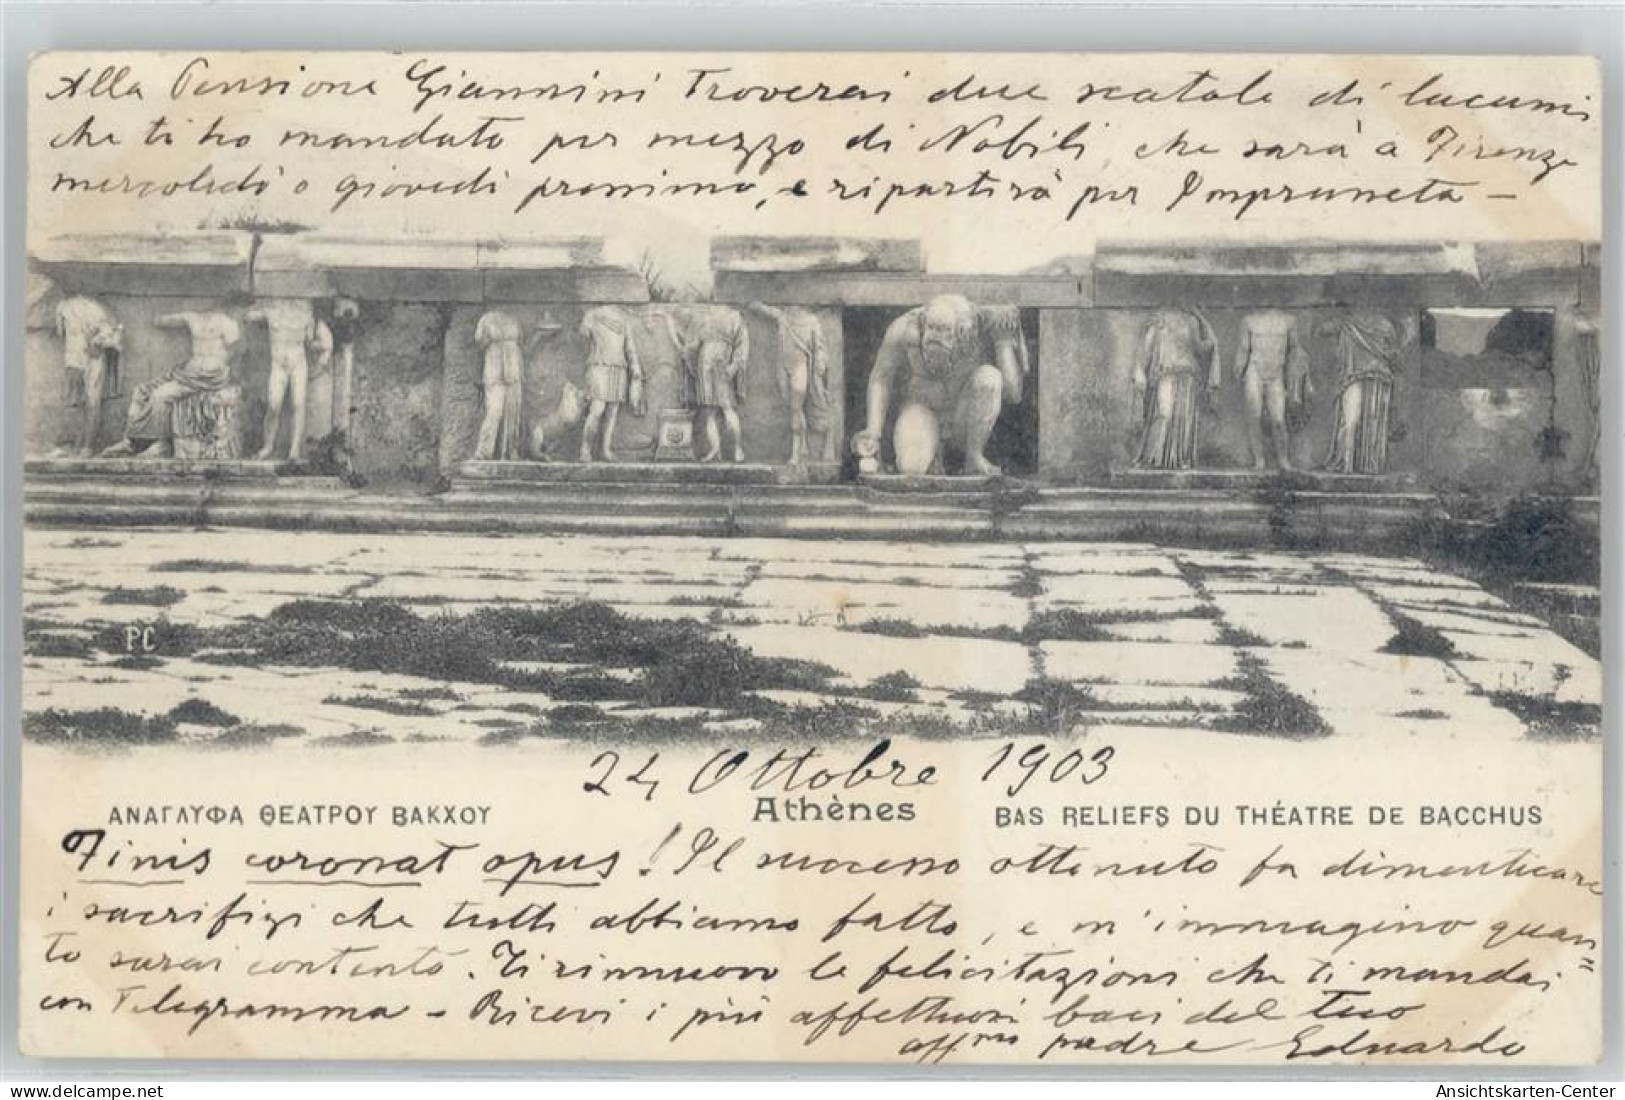 Alla Pensione Giannini troverai due scatole di lucumi
che ti ho mandato per mezzo di Nobili, che sarà a Firenze
mercoledì o giovedì prossimo, e ripartirà per Impruneta —
PC
24 Ottobre 1903
ΑΝΑΓΛΥΦΑ ΘΕΑΤΡΟΥ ΒΑΚΧΟΥ Athènes BAS RELIEFS DU THÉATRE DE BACCHUS
Finis coronat opus! Il successo ottenuto fa dimenticare
i sacrifizi che tutti abbiamo fatto, e m'immagino quan"
to sarai contento. Ti rinnuovo le felicitazioni che ti mandai
con Telegramma — Ricevi i più affettuosi baci del tuo
aff.mo padre Eduardo
Ansichtskarten-Center